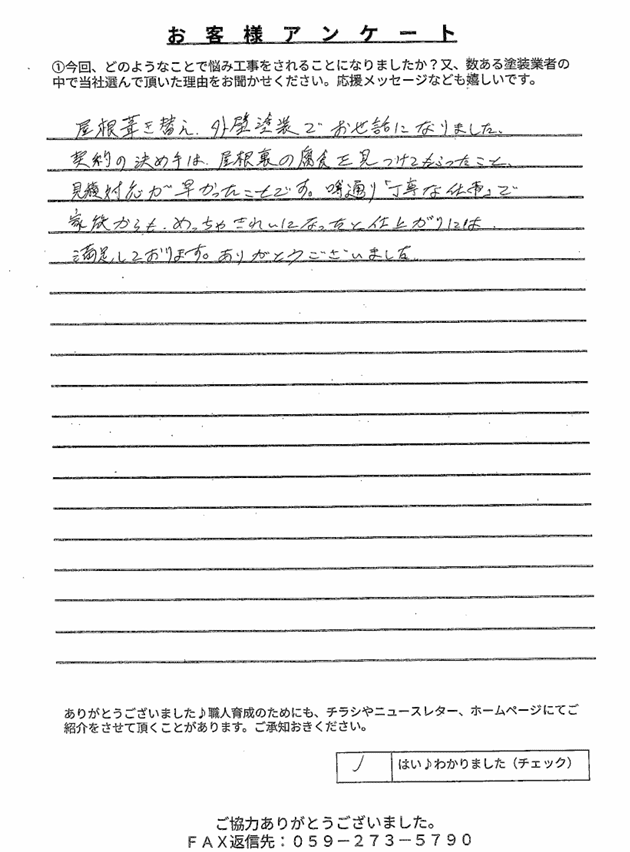 お客様アンケート
①今回、どのようなことで悩み工事をされることになりましたか?又、数ある塗装業者の
中で当社選んで頂いた理由をお聞かせください。応援メッセージなども嬉しいです。
屋根葺き替え、外壁塗装でお世話になりました。
契約の決め手は、屋根裏の腐食を見つけてもらったこと、
見積対応が早かったことです。噂通り「丁寧な仕事」で
家族からも、めっちゃきれいになったと仕上がりには、
満足しております。ありがとうございました。
ありがとうございました♪職人育成のためにも、チラシやニュースレター、ホームページにてご
紹介をさせて頂くことがあります。ご承知おきください。
はい♪わかりました(チェック)
ご協力ありがとうございました。
FAX返信先:059-273-5790